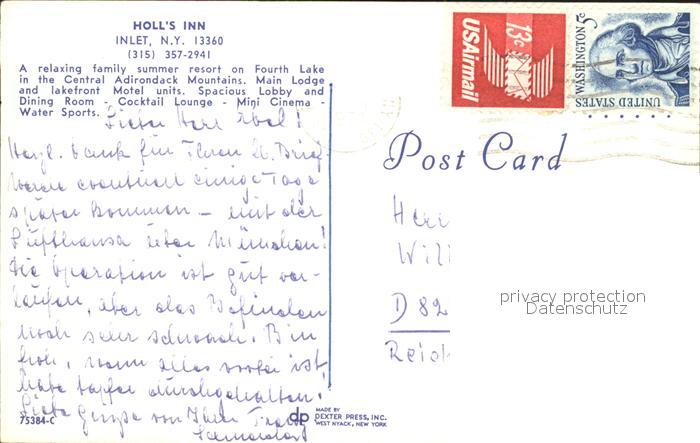 HOLL'S INN
INLET, N.Y. 13360
(315) 357-2941
A relaxing family summer resort on Fourth Lake
in the Central Adirondack Mountains. Main Lodge
and lakefront Motel units. Spacious Lobby and
Dining Room - Cocktail Lounge - Mini Cinema -
Water Sports.
Lieber Herr !
Herzl. Dank für Ihren lb. Brief.
Werde eventuell einige Tage
später kommen – mit der
Lufthansa über München!
Die Operation ist gut ver-
laufen, aber das Befinden
noch sehr schwach. Bin
froh, wenn alles vorbei ist,
habe tapfer durchgehalten!
Liebe Grüße von Ihrer
75384-C
USAirmail
13c
WASHINGTON 5c
UNITED STATES
Post Card
Herr
Will
D 82
Reich
privacy protection
Datenschutz
dp
MADE BY
DEXTER PRESS, INC.
WEST NYACK, NEW YORK